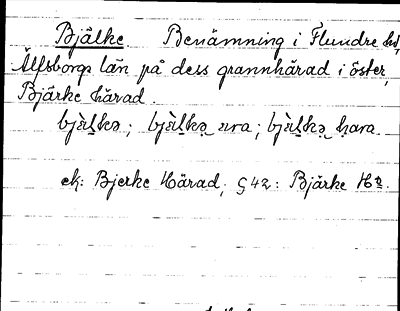 Bjälke. Benämning i Flundre hd,
Älfsborgs län på dess grannhärad i öster,
Bjärke härad.
bjàḷkə; bjàḷkə̣ ara; bjàḷkə̣ hara.
ek: Bjerke Härad; G42: Bjärke Hd.